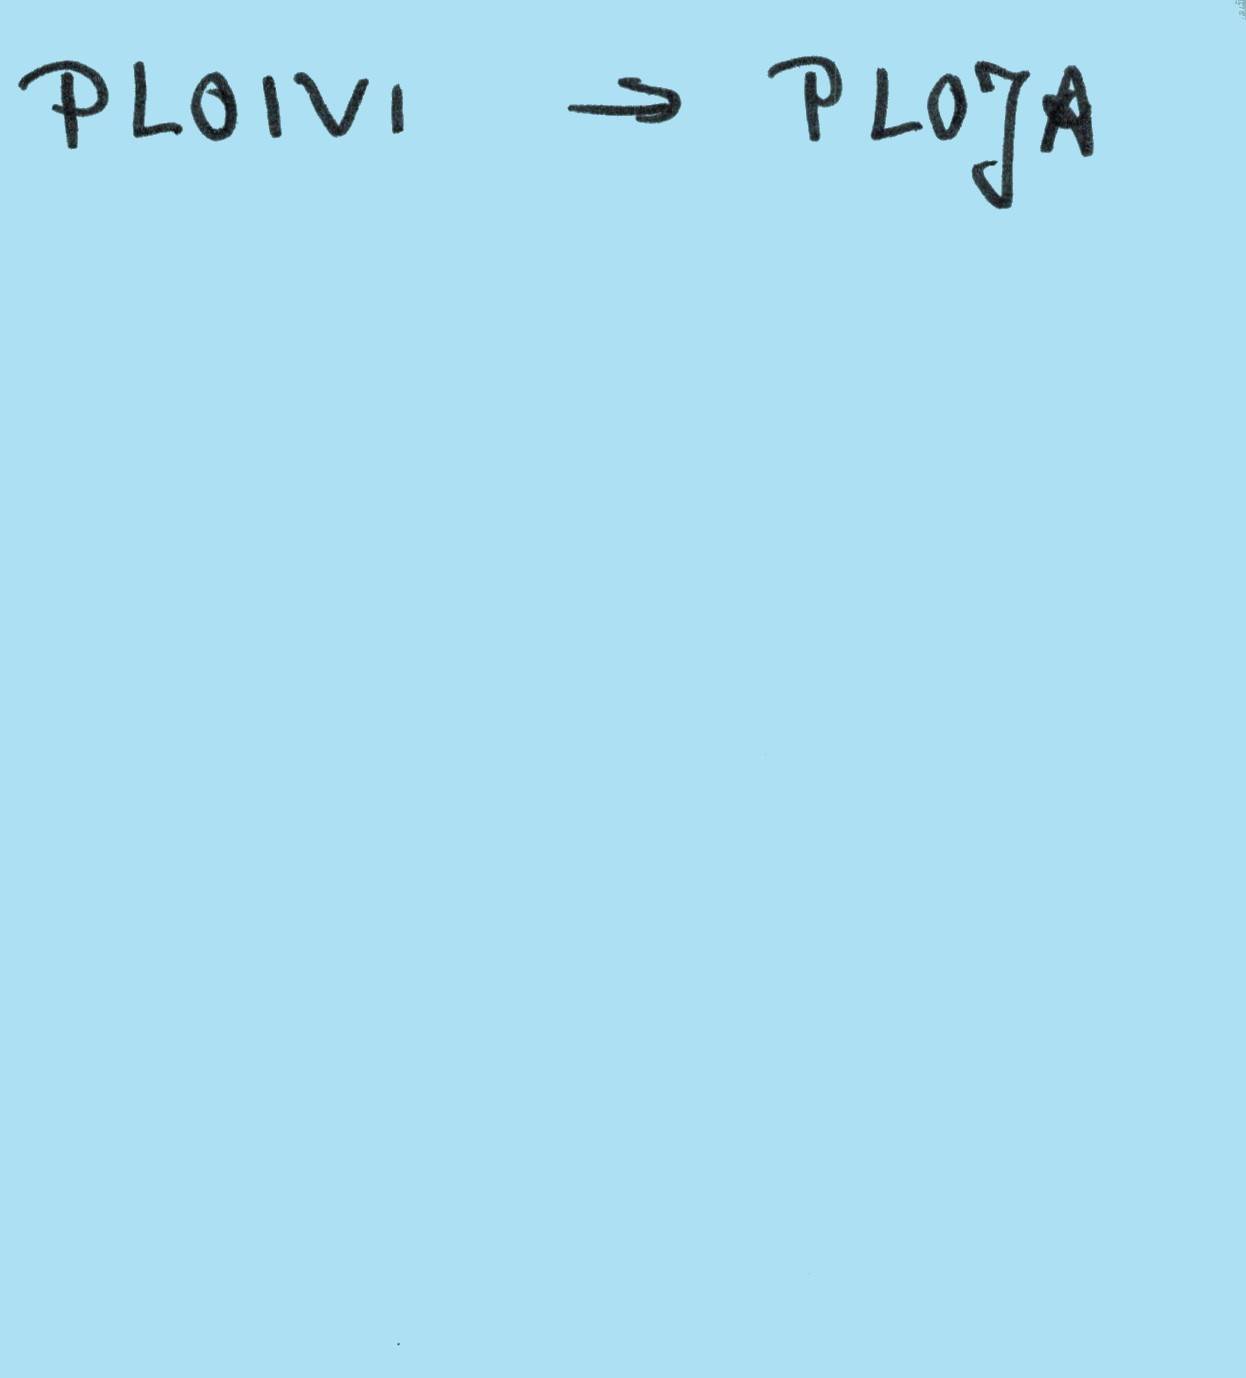 PLOIVI → PLOJA